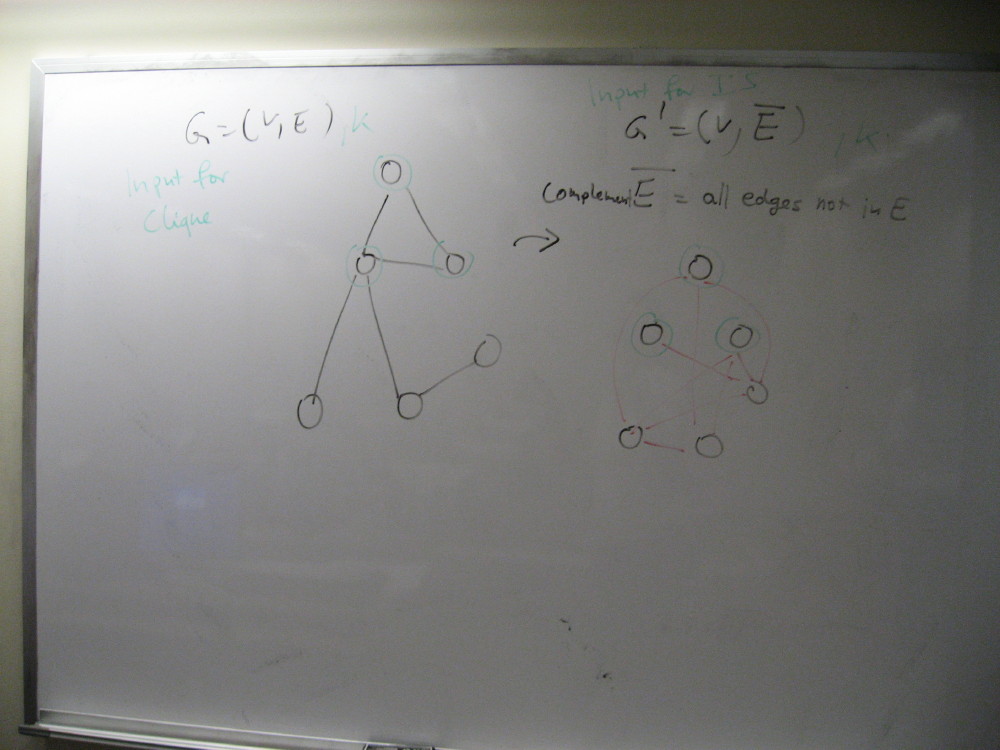 G = (V, E), k
Input for
Clique
Input for IS
G' = (V, E̅), k
Complement E̅ = all edges not in E